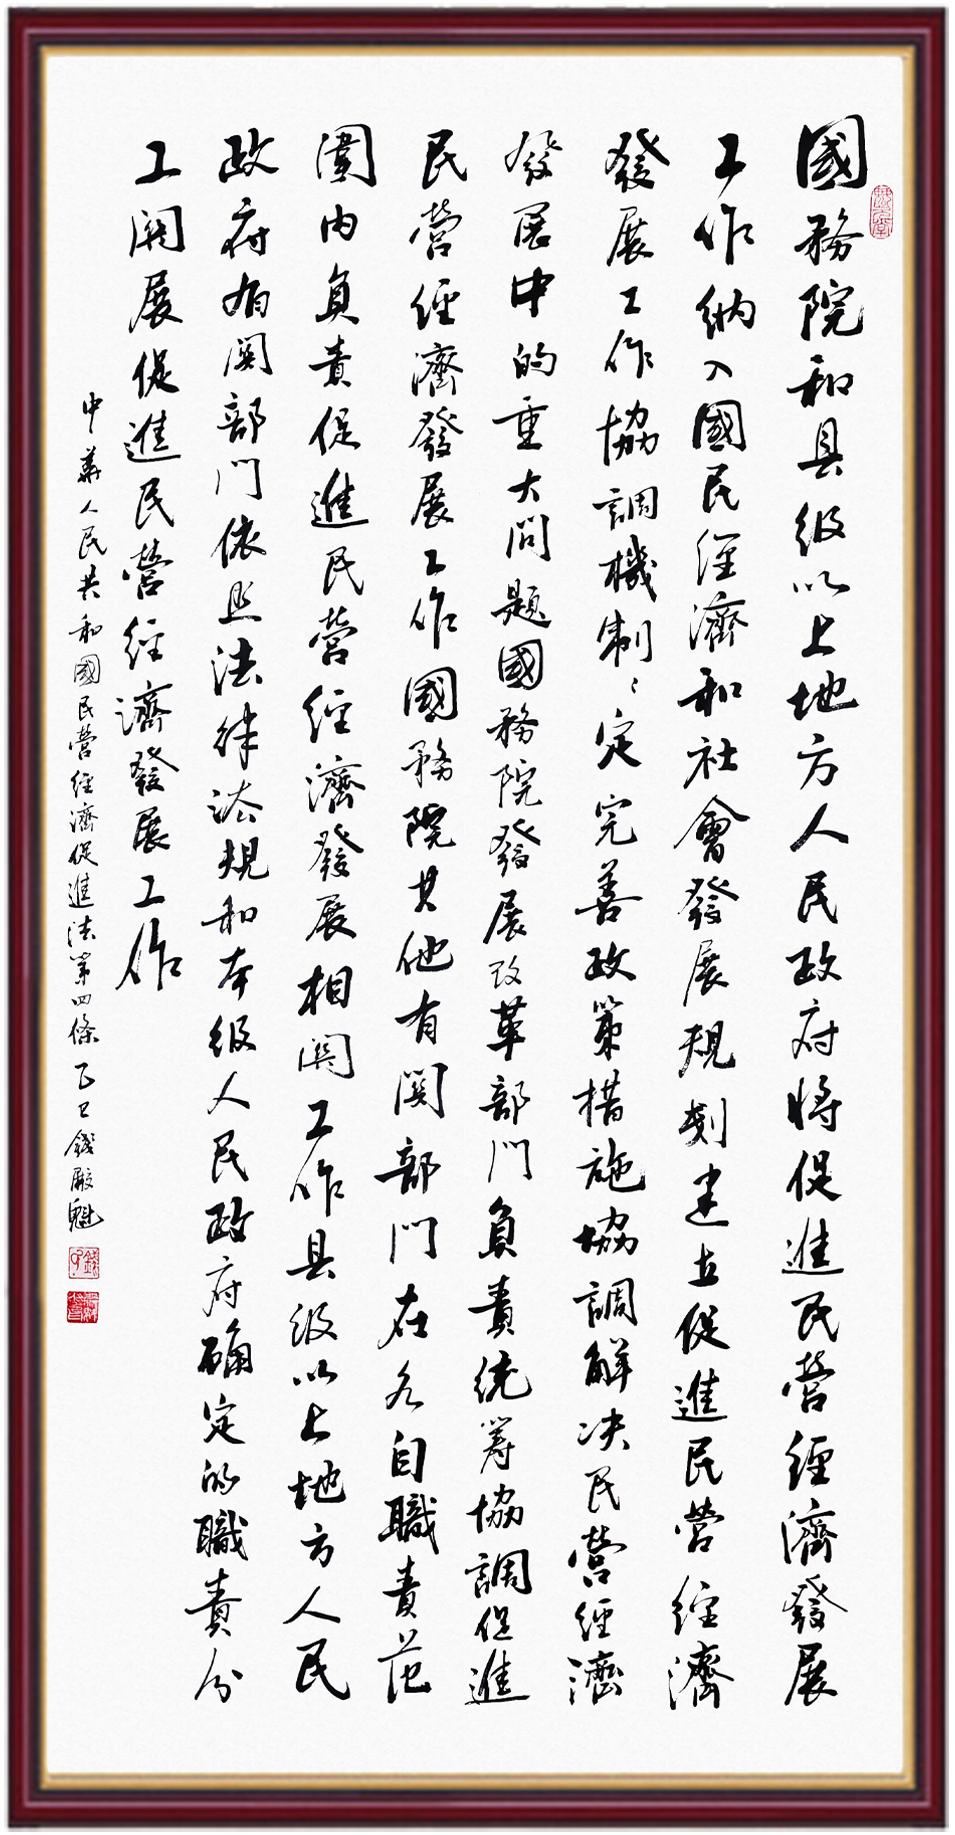 國務院和县级以上地方人民政府將促進民营經濟發展
工作納入國民經濟和社會發展規劃建立促進民营經濟
發展工作協調機制制定完善政策措施協調解决民营經濟
發展中的重大問題國務院發展改革部門負責統籌協調促進
民营經濟發展工作國務院其他有関部門在各自職責范
圍内負責促進民营經濟發展相関工作县级以上地方人民
政府有関部門依照法律法規和本级人民政府确定的職責分
工開展促進民营經濟發展工作
中華人民共和國民营經濟促進法第四條乙巳錢殿魁